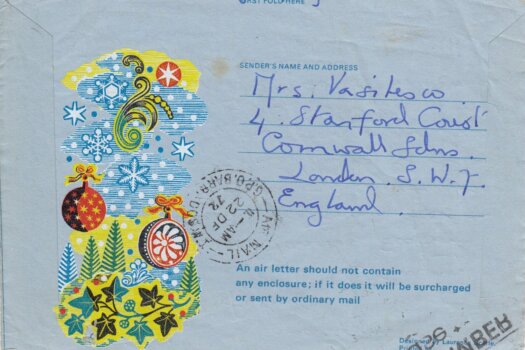 FIRST FOLD HERE
SENDER'S NAME AND ADDRESS
Mrs. Vasilesco
4. Stanford Court
Cornwall Gdns.
London. S.W.7.
England.
An air letter should not contain
any enclosure; if it does it will be surcharged
or sent by ordinary mail
AIR MAIL
G.P.O. BARBADOS
AM
22 DE
72
Designed by